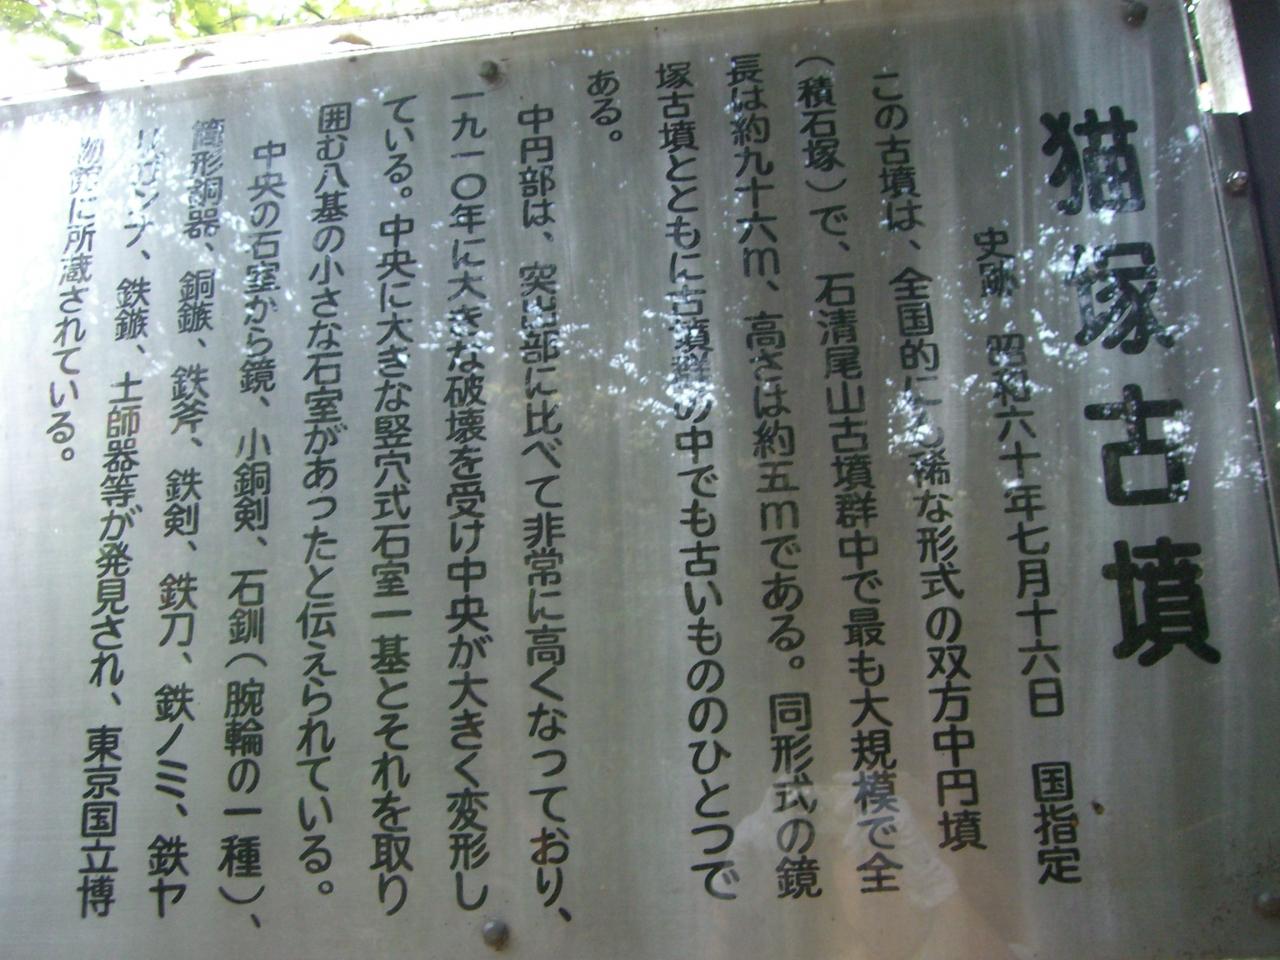 猫塚古墳
史跡　昭和六十年七月十六日　国指定
この古墳は、全国的にも稀な形式の双方中円墳
（積石塚）で、石清尾山古墳群中で最も大規模で全
長は約九十六ｍ、高さは約五ｍである。同形式の鏡
塚古墳とともに古墳群の中でも古いもののひとつで
ある。
中円部は、突出部に比べて非常に高くなっており、
一九一〇年に大きな破壊を受け中央が大きく変形し
ている。中央に大きな竪穴式石室一基とそれを取り
囲む八基の小さな石室があったと伝えられている。
中央の石室から鏡、小銅剣、石釧（腕輪の一種）、
筒形銅器、銅鏃、鉄斧、鉄剣、鉄刀、鉄ノミ、鉄ヤ
リガンナ、鉄鏃、土師器等が発見され、東京国立博
物館に所蔵されている。